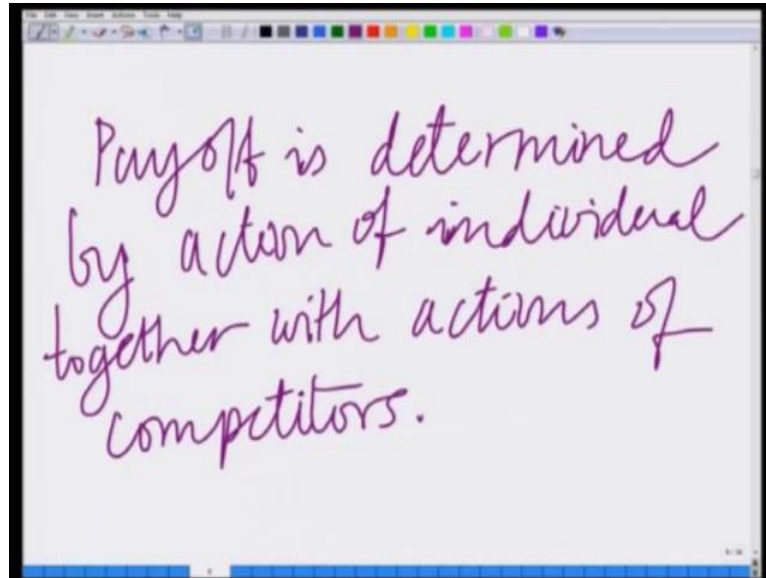 File Edit View Insert Actions Tools Help
Payoff is determined
by action of individual
together with actions of
competitors.